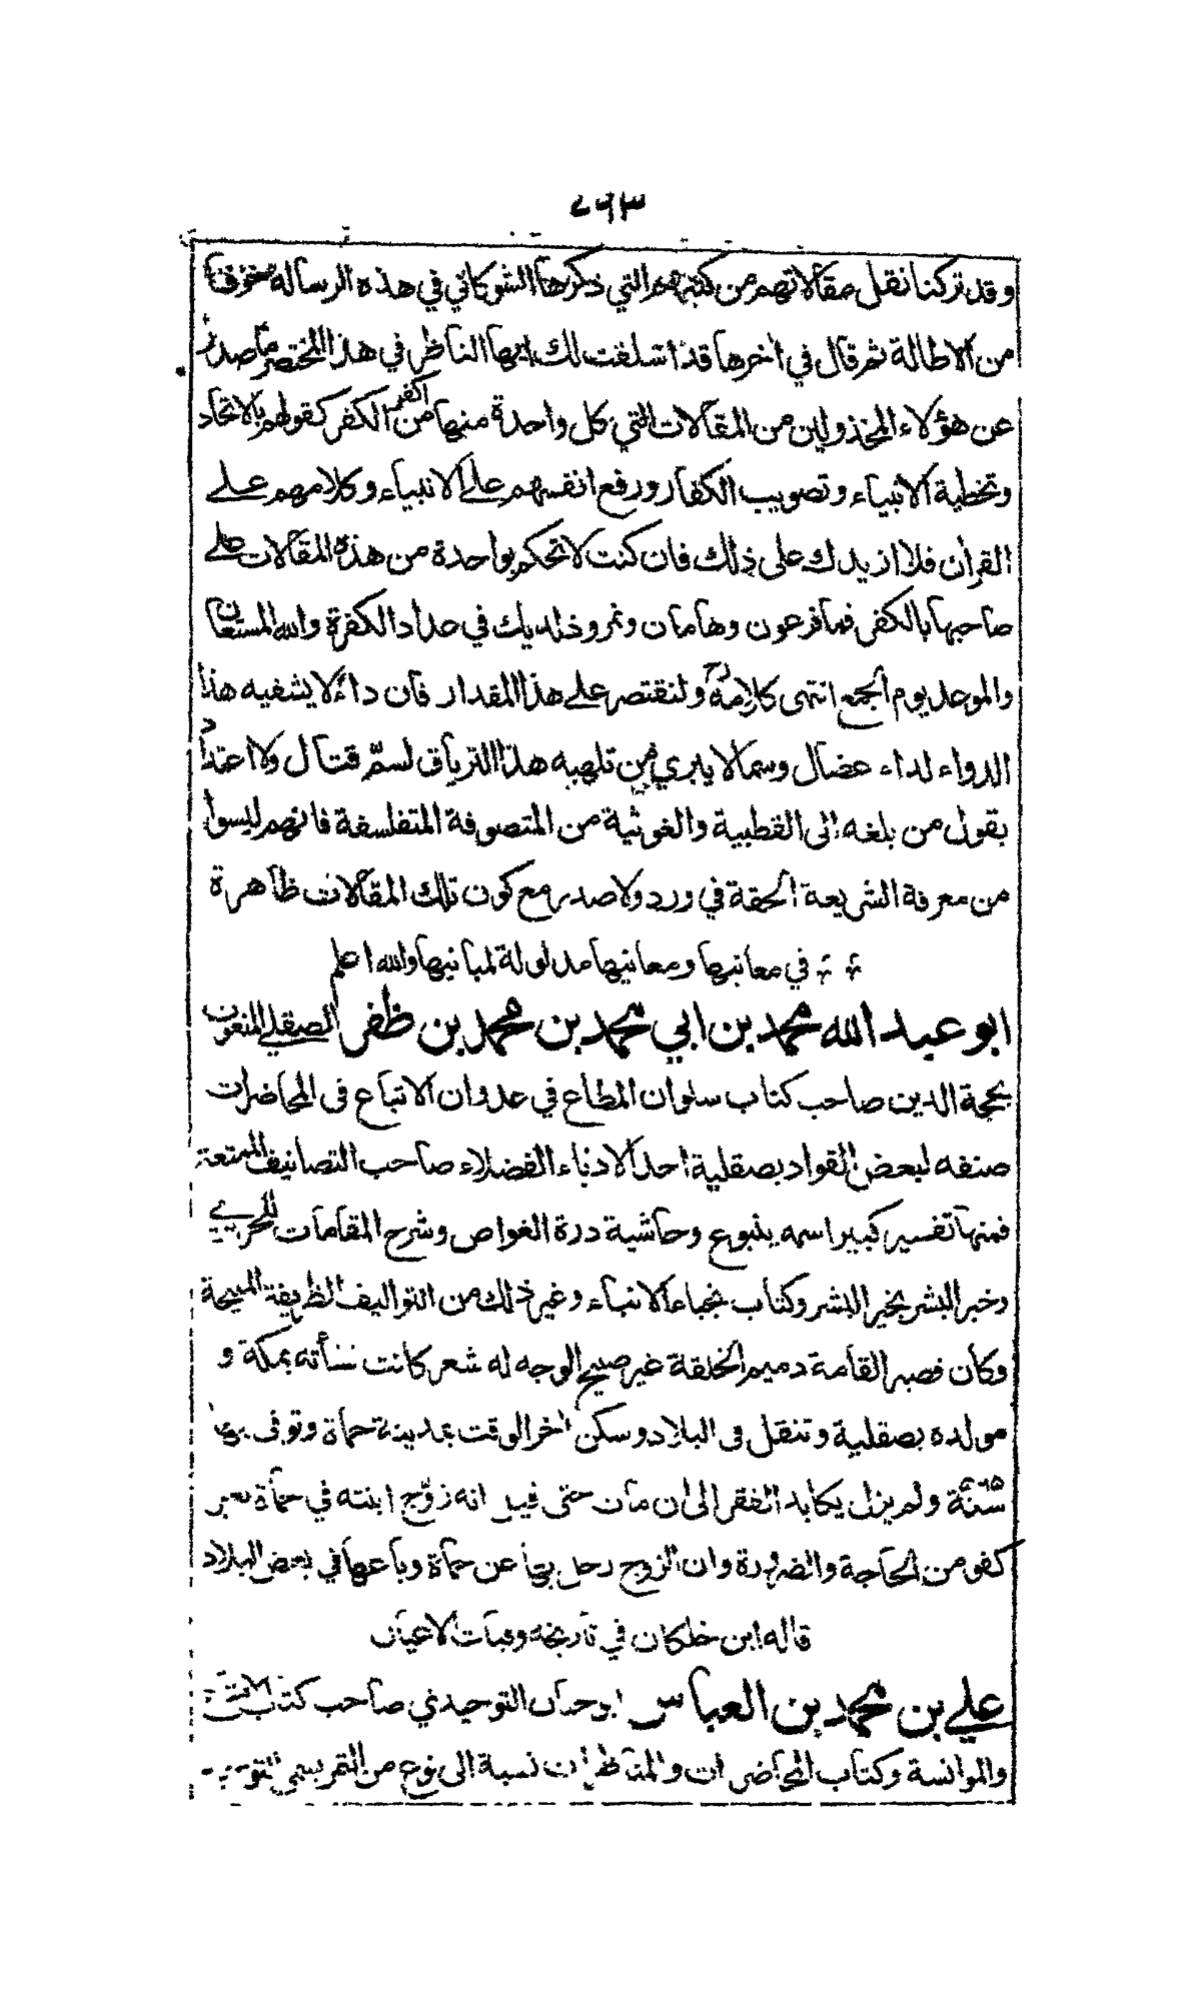 ٧٦٣
وقد تركنا نقل مقالاتهم من كتبهم التي ذكرها الشوكاني في هذه الرسالة خوفا
من الاطالة ثم قال في اخرها قد اسلفت لك ايها الناظر في هذا المختصر ما صدر
عن هؤلاء المخذولين من المقالات التي كل واحدة منها من اكفر الكفر كقولهم بالاتحاد
وتخطية الانبياء وتصويب الكفار ورفع انفسهم على الانبياء وكلامهم على
القران فلا ازيدك على ذلك فان كنت لا تحكم بواحدة من هذه المقالات على
صاحبها بالكفر فما فرعون وهامان ونمروذ لديك في عداد الكفرة والله المستعان
والموعد يوم الجمع انتهى كلامه رح ولنقتصر على هذا المقدار فان داء لا يشفيه هذا
الدواء لداء عضال وسما لا يبري من تلهبه هذا الترياق لسمّ قتال ولا اعتداد
بقول من بلغه الى القطبية والغوثية من المتصوفة المتفلسفة فانهم ليسوا
من معرفة الشريعة الحقة في ورد ولا صدر مع كون تلك المقالات ظاهرة
في معانيها ومعانيها مدلولة لمبانيها والله اعلم
ابو عبد الله محمد بن ابي محمد بن محمد بن ظفر الصقلي المنعوت
بحجة الدين صاحب كتاب سلوان المطاع في عدوان الاتباع فى المحاضرات
صنفه لبعض القواد بصقلية احد الادباء الفضلاء صاحب التصانيف الممتعة
فمنها تفسير كبير اسمه ينبوع وحاشية درة الغواص وشرح المقامات للحريري
وخبر البشر بخير البشر وكتاب نجباء الانباء وغير ذلك من التواليف الظريفة المليحة
وكان قصير القامة دميم الخلقة غير صبيح الوجه له شعر كانت نشأته بمكة و
مولده بصقلية وتنقل فى البلاد وسكن اخر الوقت بمدينة حماة وتوفى بها
سنة ولم يزل يكابد الفقر الى ان مات حتى قيل انه زوّج ابنته في حماة بغير
كفو من الحاجة والضرورة وان الزوج رحل بها عن حماة وباعها في بعض البلاد
قاله ابن خلكان في تاريخه وفيات الاعيان
علي بن محمد بن العباس ابو حيان التوحيدي صاحب كتاب الامتاع
والموانسة وكتاب المحاضرات والمناظرات نسبة الى نوع من التمر يسمى التوحيد